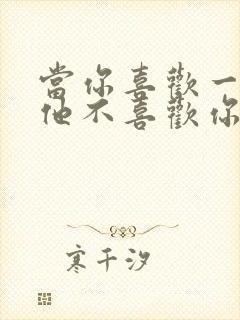 當你喜歡一
他不喜歡你
寒千汐